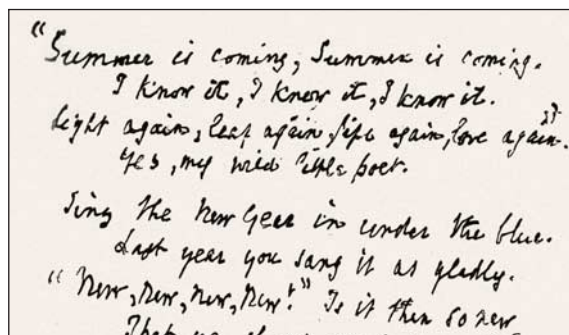 "Summer is coming, Summer is coming.
I know it, I know it, I know it.
Light again, leaf again, life again, love again."
Yes, my wild little poet.
Sing the New Year in under the blue.
Last year you sang it as gladly.
"New, new, new, new!" Is it then so new